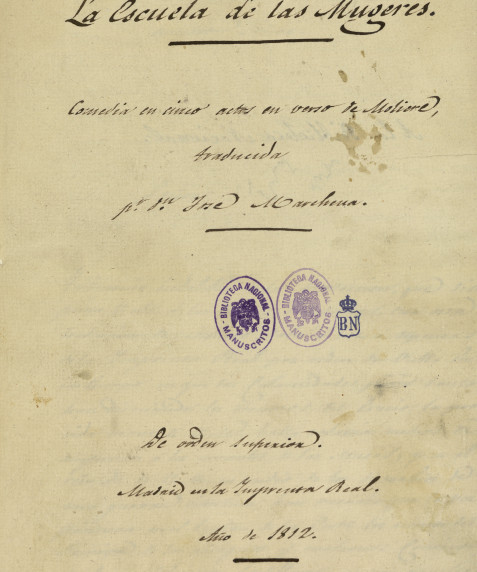 La Escuela de las Mugeres.
Comedia en cinco actos en verso de Moliere,
traducida
pr. Dn. José Marchena.
BIBLIOTECA NACIONAL
MANUSCRITOS
BIBLIOTECA NACIONAL
MANUSCRITOS
BN
De orden superior.
Madrid en la Imprenta Real.
Año de 1812.